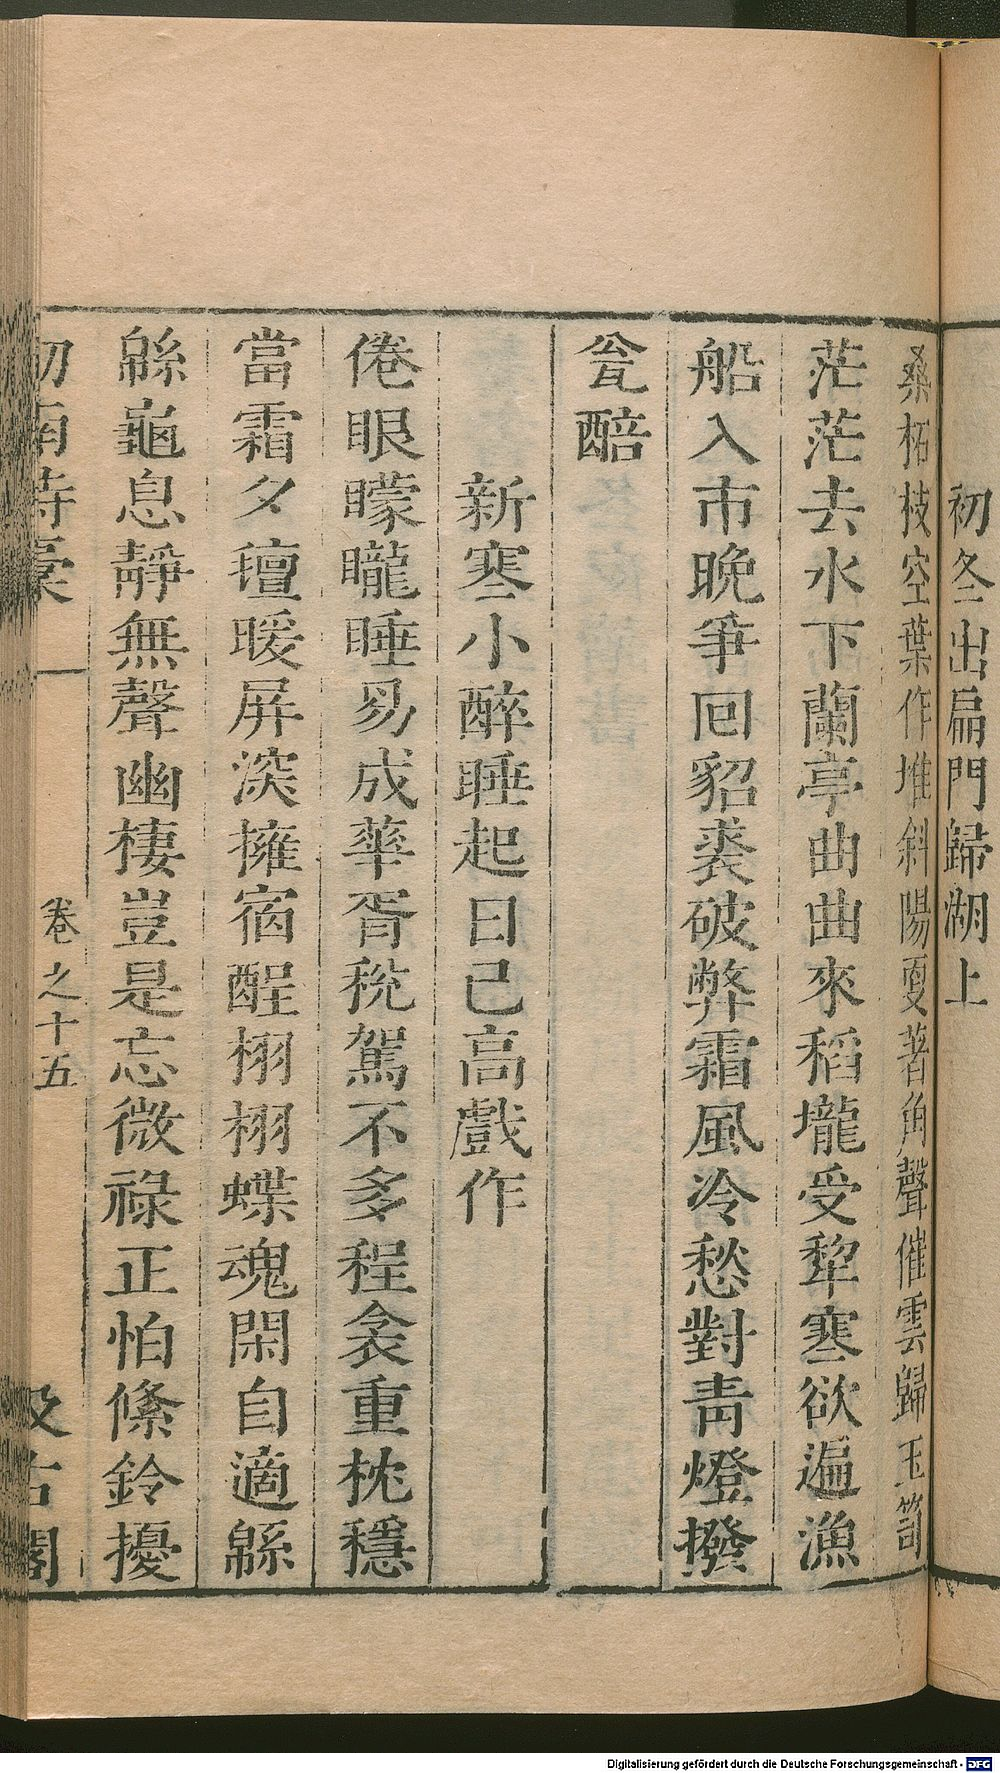 初冬出扁門歸湖上
桑柘枝空葉作堆斜陽戞著角聲催雲歸玉笥
茫茫去水下蘭亭曲曲來稻壠受犂寒欲遍漁
船入市晚爭回貂裘破弊霜風冷愁對靑燈撥
瓮醅
新寒小醉睡起日已高戲作
倦眼矇矓睡易成華胥稅駕不多程衾重枕穩
當霜夕氊暖屏深擁宿酲栩栩蝶魂閑自適緜
緜龜息靜無聲幽棲豈是忘微祿正怕絛鈴擾
劒南詩稾 卷之十五 汲古閣
Digitalisierung gefördert durch die Deutsche Forschungsgemeinschaft - DFG